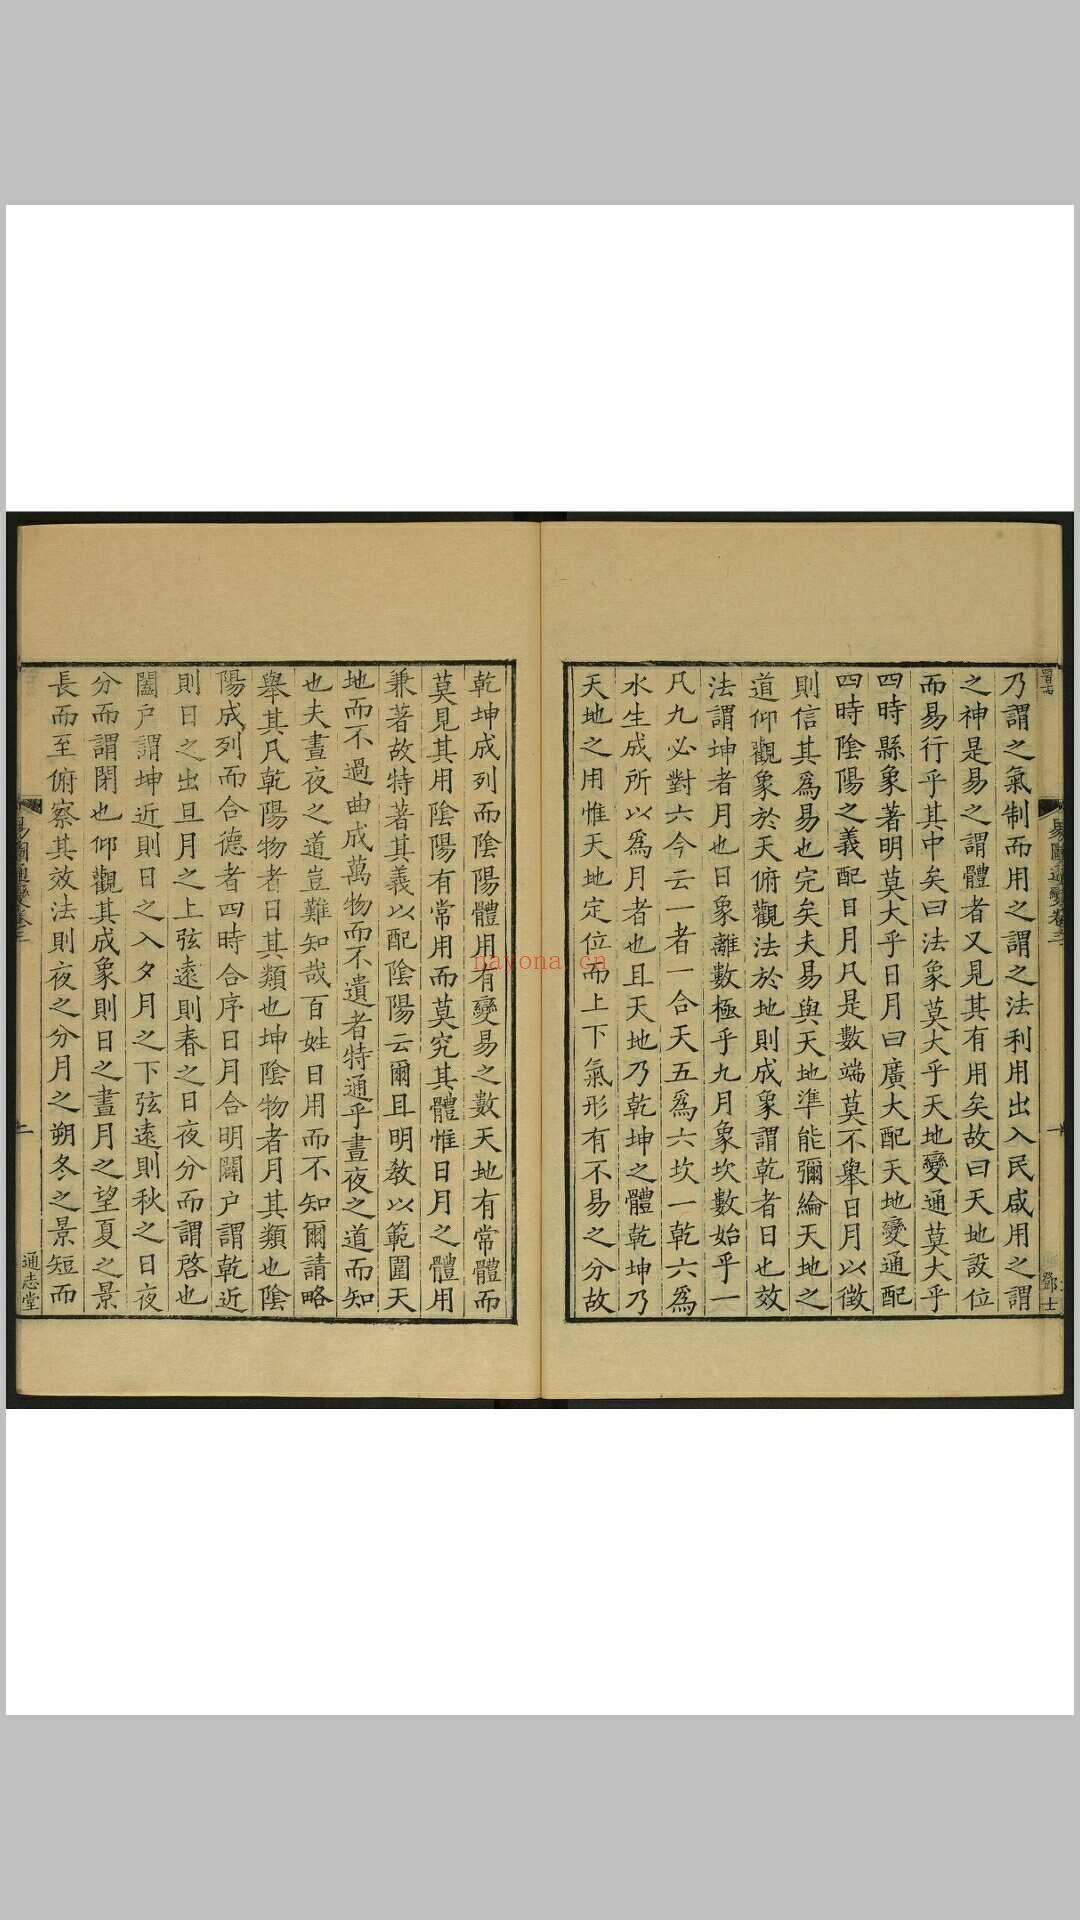 乃謂之氣制而用之謂之法利用出入民咸用之謂
之神是易之謂體者又見其有用矣故曰天地設位
而易行乎其中矣曰法象莫大乎天地變通莫大乎
四時縣象著明莫大乎日月曰廣大配天地變通配
四時陰陽之義配日月凡是數端莫不舉日月以徵
則信其爲易也完矣夫易與天地準能彌綸天地之
道仰觀象於天俯觀法於地則成象謂乾者日也效
法謂坤者月也日象離數極乎九月象坎數始乎一
凡九必對六今云一者一合天五爲六坎一乾六爲
水生成所以爲月者也且天地乃乾坤之體乾坤乃
天地之用惟天地定位而上下氣形有不易之分故
易圖通變卷三
一
鄧士
乾坤成列而陰陽體用有變易之數天地有常體而
莫見其用陰陽有常用而莫究其體惟日月之體用
兼著故特著其義以配陰陽云爾且明教以範圍天
地而不過曲成萬物而不遺者特通乎晝夜之道而知
也夫晝夜之道豈難知哉百姓日用而不知爾請略
舉其凡乾陽物者日其類也坤陰物者月其類也陰
陽成列而合德者四時合序日月合明闢户謂乾近
則日之出旦月之上弦遠則春之日夜分而謂啓也
闔户謂坤近則日之入夕月之下弦遠則秋之日夜
分而謂閉也仰觀其成象則日之晝月之望夏之景
長而至俯察其效法則夜之分月之朔冬之景短而
易圖通變卷三
通志堂
nayona.ca